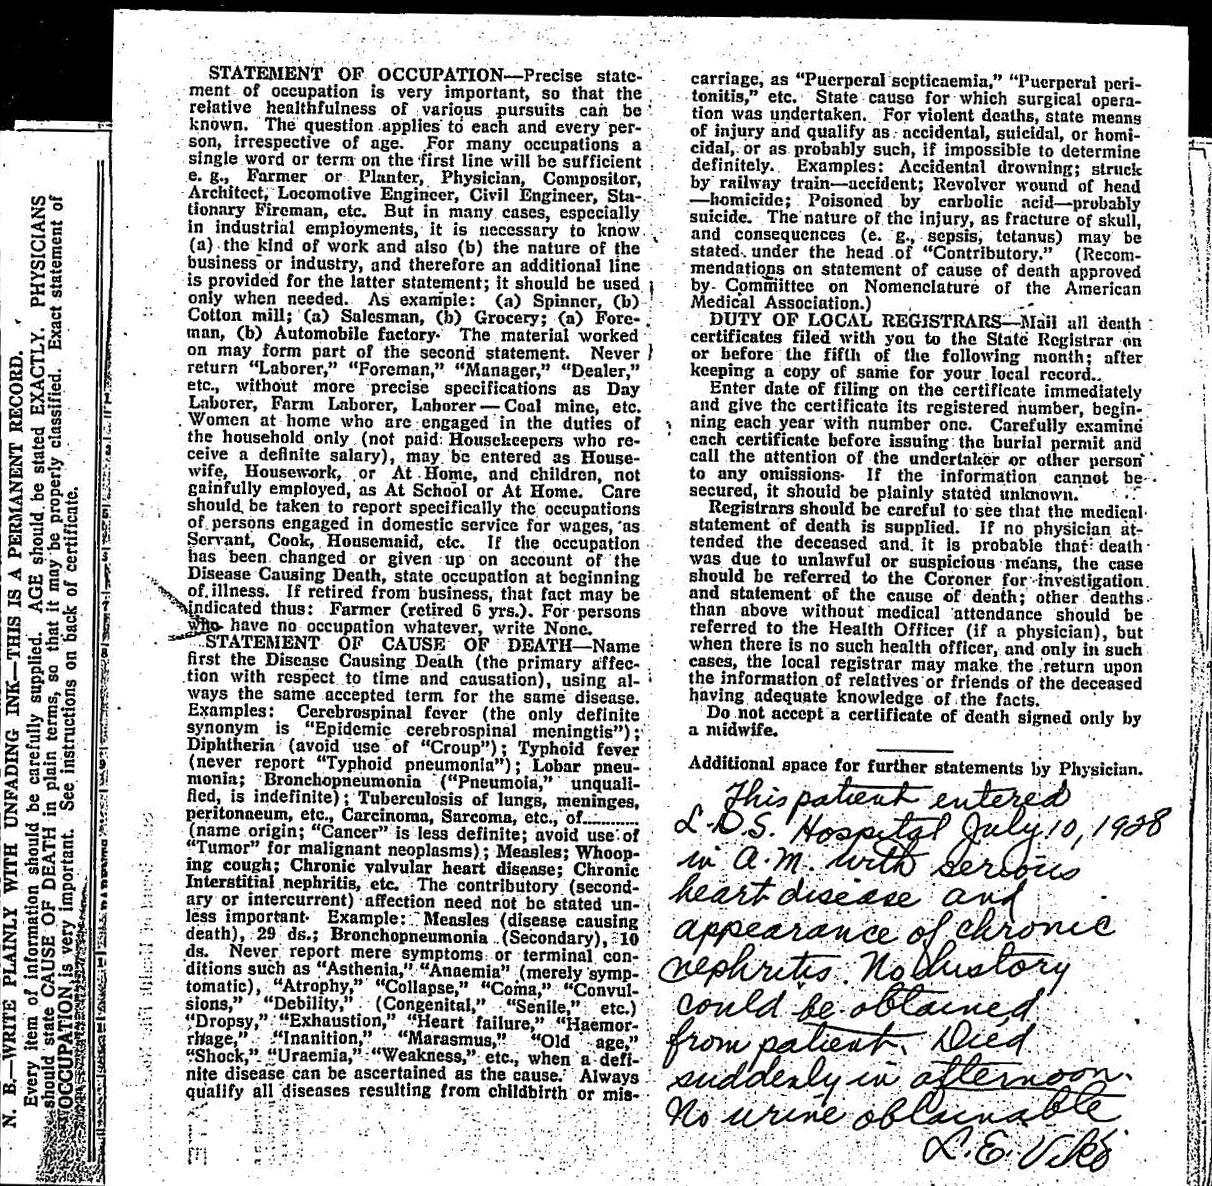 N. B.—WRITE PLAINLY WITH UNFADING INK—THIS IS A PERMANENT RECORD.
Every item of information should be carefully supplied. AGE should be stated EXACTLY. PHYSICIANS
should state CAUSE OF DEATH in plain terms, so that it may be properly classified. Exact statement of
OCCUPATION is very important. See instructions on back of certificate.
STATEMENT OF OCCUPATION—Precise state-
ment of occupation is very important, so that the
relative healthfulness of various pursuits can be
known. The question applies to each and every per-
son, irrespective of age. For many occupations a
single word or term on the first line will be sufficient
e. g., Farmer or Planter, Physician, Compositor,
Architect, Locomotive Engineer, Civil Engineer, Sta-
tionary Fireman, etc. But in many cases, especially
in industrial employments, it is necessary to know
(a) the kind of work and also (b) the nature of the
business or industry, and therefore an additional line
is provided for the latter statement; it should be used
only when needed. As example: (a) Spinner, (b)
Cotton mill; (a) Salesman, (b) Grocery; (a) Fore-
man, (b) Automobile factory. The material worked
on may form part of the second statement. Never
return "Laborer," "Foreman," "Manager," "Dealer,"
etc., without more precise specifications as Day
Laborer, Farm Laborer, Laborer—Coal mine, etc.
Women at home who are engaged in the duties of
the household only (not paid Housekeepers who re-
ceive a definite salary), may be entered as House-
wife, Housework, or At Home, and children, not
gainfully employed, as At School or At Home. Care
should be taken to report specifically the occupations
of persons engaged in domestic service for wages, as
Servant, Cook, Housemaid, etc. If the occupation
has been changed or given up on account of the
Disease Causing Death, state occupation at beginning
of illness. If retired from business, that fact may be
indicated thus: Farmer (retired 6 yrs.). For persons
who have no occupation whatever, write None.
STATEMENT OF CAUSE OF DEATH—Name
first the Disease Causing Death (the primary affec-
tion with respect to time and causation), using al-
ways the same accepted term for the same disease.
Examples: Cerebrospinal fever (the only definite
synonym is "Epidemic cerebrospinal meningtis");
Diphtheria (avoid use of "Croup"); Typhoid fever
(never report "Typhoid pneumonia"); Lobar pneu-
monia; Bronchopneumonia ("Pneumoia," unquali-
fied, is indefinite); Tuberculosis of lungs, meninges,
peritonaeum, etc., Carcinoma, Sarcoma, etc., of..........
(name origin; "Cancer" is less definite; avoid use of
"Tumor" for malignant neoplasms); Measles; Whoop-
ing cough; Chronic valvular heart disease; Chronic
Interstitial nephritis, etc. The contributory (second-
ary or intercurrent) affection need not be stated un-
less important. Example: Measles (disease causing
death), 29 ds.; Bronchopneumonia (Secondary), 10
ds. Never report mere symptoms or terminal con-
ditions such as "Asthenia," "Anaemia" (merely symp-
tomatic), "Atrophy," "Collapse," "Coma," "Convul-
sions," "Debility," (Congenital," "Senile," etc.)
"Dropsy," "Exhaustion," "Heart failure," "Haemor-
rhage," "Inanition," "Marasmus," "Old age,"
"Shock," "Uraemia," "Weakness," etc., when a defi-
nite disease can be ascertained as the cause. Always
qualify all diseases resulting from childbirth or mis-
carriage, as "Puerperal septicaemia," "Puerperal peri-
tonitis," etc. State cause for which surgical opera-
tion was undertaken. For violent deaths, state means
of injury and qualify as accidental, suicidal, or homi-
cidal, or as probably such, if impossible to determine
definitely. Examples: Accidental drowning; struck
by railway train—accident; Revolver wound of head
—homicide; Poisoned by carbolic acid—probably
suicide. The nature of the injury, as fracture of skull,
and consequences (e. g., sepsis, tetanus) may be
stated under the head of "Contributory." (Recom-
mendations on statement of cause of death approved
by Committee on Nomenclature of the American
Medical Association.)
DUTY OF LOCAL REGISTRARS—Mail all death
certificates filed with you to the State Registrar on
or before the fifth of the following month; after
keeping a copy of same for your local record.
Enter date of filing on the certificate immediately
and give the certificate its registered number, begin-
ning each year with number one. Carefully examine
each certificate before issuing the burial permit and
call the attention of the undertaker or other person
to any omissions. If the information cannot be
secured, it should be plainly stated unknown.
Registrars should be careful to see that the medical
statement of death is supplied. If no physician at-
tended the deceased and it is probable that death
was due to unlawful or suspicious means, the case
should be referred to the Coroner for investigation
and statement of the cause of death; other deaths
than above without medical attendance should be
referred to the Health Officer (if a physician), but
when there is no such health officer, and only in such
cases, the local registrar may make the return upon
the information of relatives or friends of the deceased
having adequate knowledge of the facts.
Do not accept a certificate of death signed only by
a midwife.
Additional space for further statements by Physician.
This patient entered
L.D.S. Hospital July 10, 1928
in A.M. with serious
heart disease and
appearance of chronic
nephritis. No history
could be obtained
from patient. Died
suddenly in afternoon.
No urine obtainable
L. E. Viko